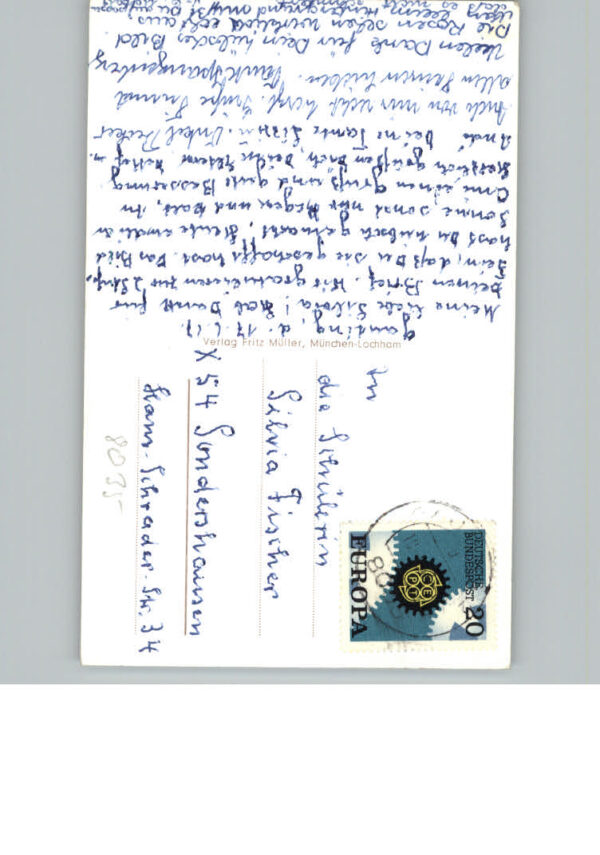 Gauting, d. 17.6.67.
Meine liebe Silvia! Hab Dank für
Deinen Brief. Wir gratulieren zur 2 Stufe,
fein, daß Du sie geschafft hast. Das Bild
hast Du hübsch gemacht, Heute endlich
Sonne, sonst nur Regen und kalt. In
einen Gruß und gute Besserung
Herzlich grüßen Dich, Deine Eltern, Detlef u.
Andi Deine Tante Lissi u. Onkel
Auch von mir recht herzl. Grüße Dir und
allen Deinen Lieben.
Vielen Dank für Dein hübsches Bild.
Die Rosen sehen wirklich echt aus,
Verlag Fritz Müller, München-Lochham
An
die Schülerin
Silvia Fischer
X 54 Sondershausen
Hans-Schrader-Str. 34
8035-
DEUTSCHE
BUNDESPOST
20
CEPT
EUROPA
80